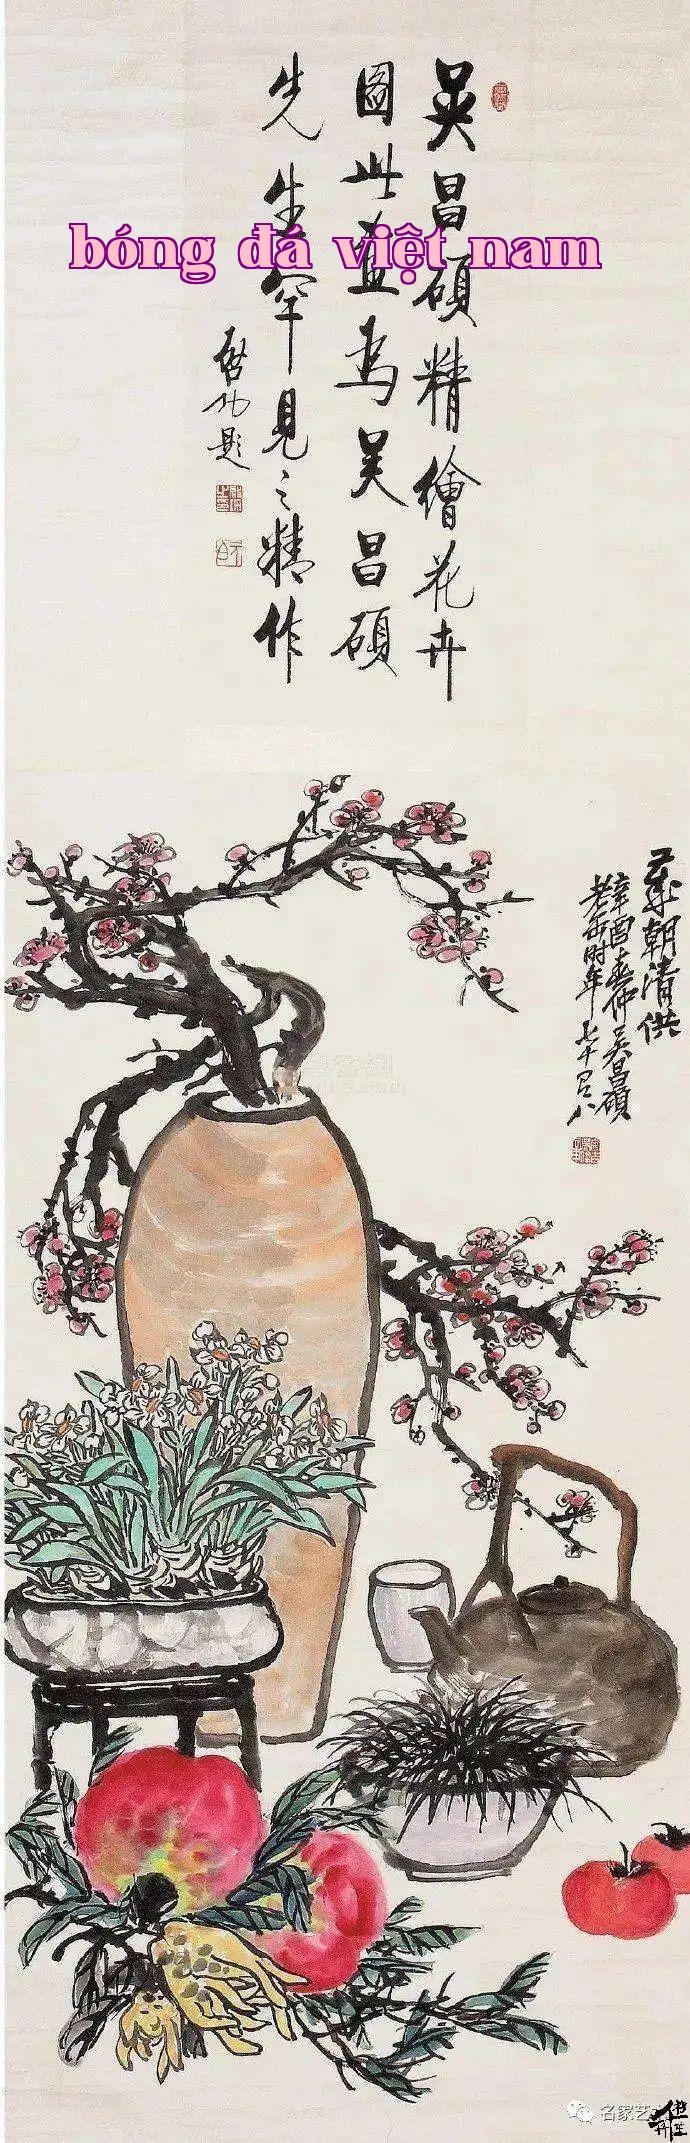 bóng đá việt nam
吴昌碩精繪花卉
圖此直為吴昌碩
先生罕見之精作
啓功題
歲朝清供
辛酉春仲吴昌碩
老缶時年七十有八
名家艺